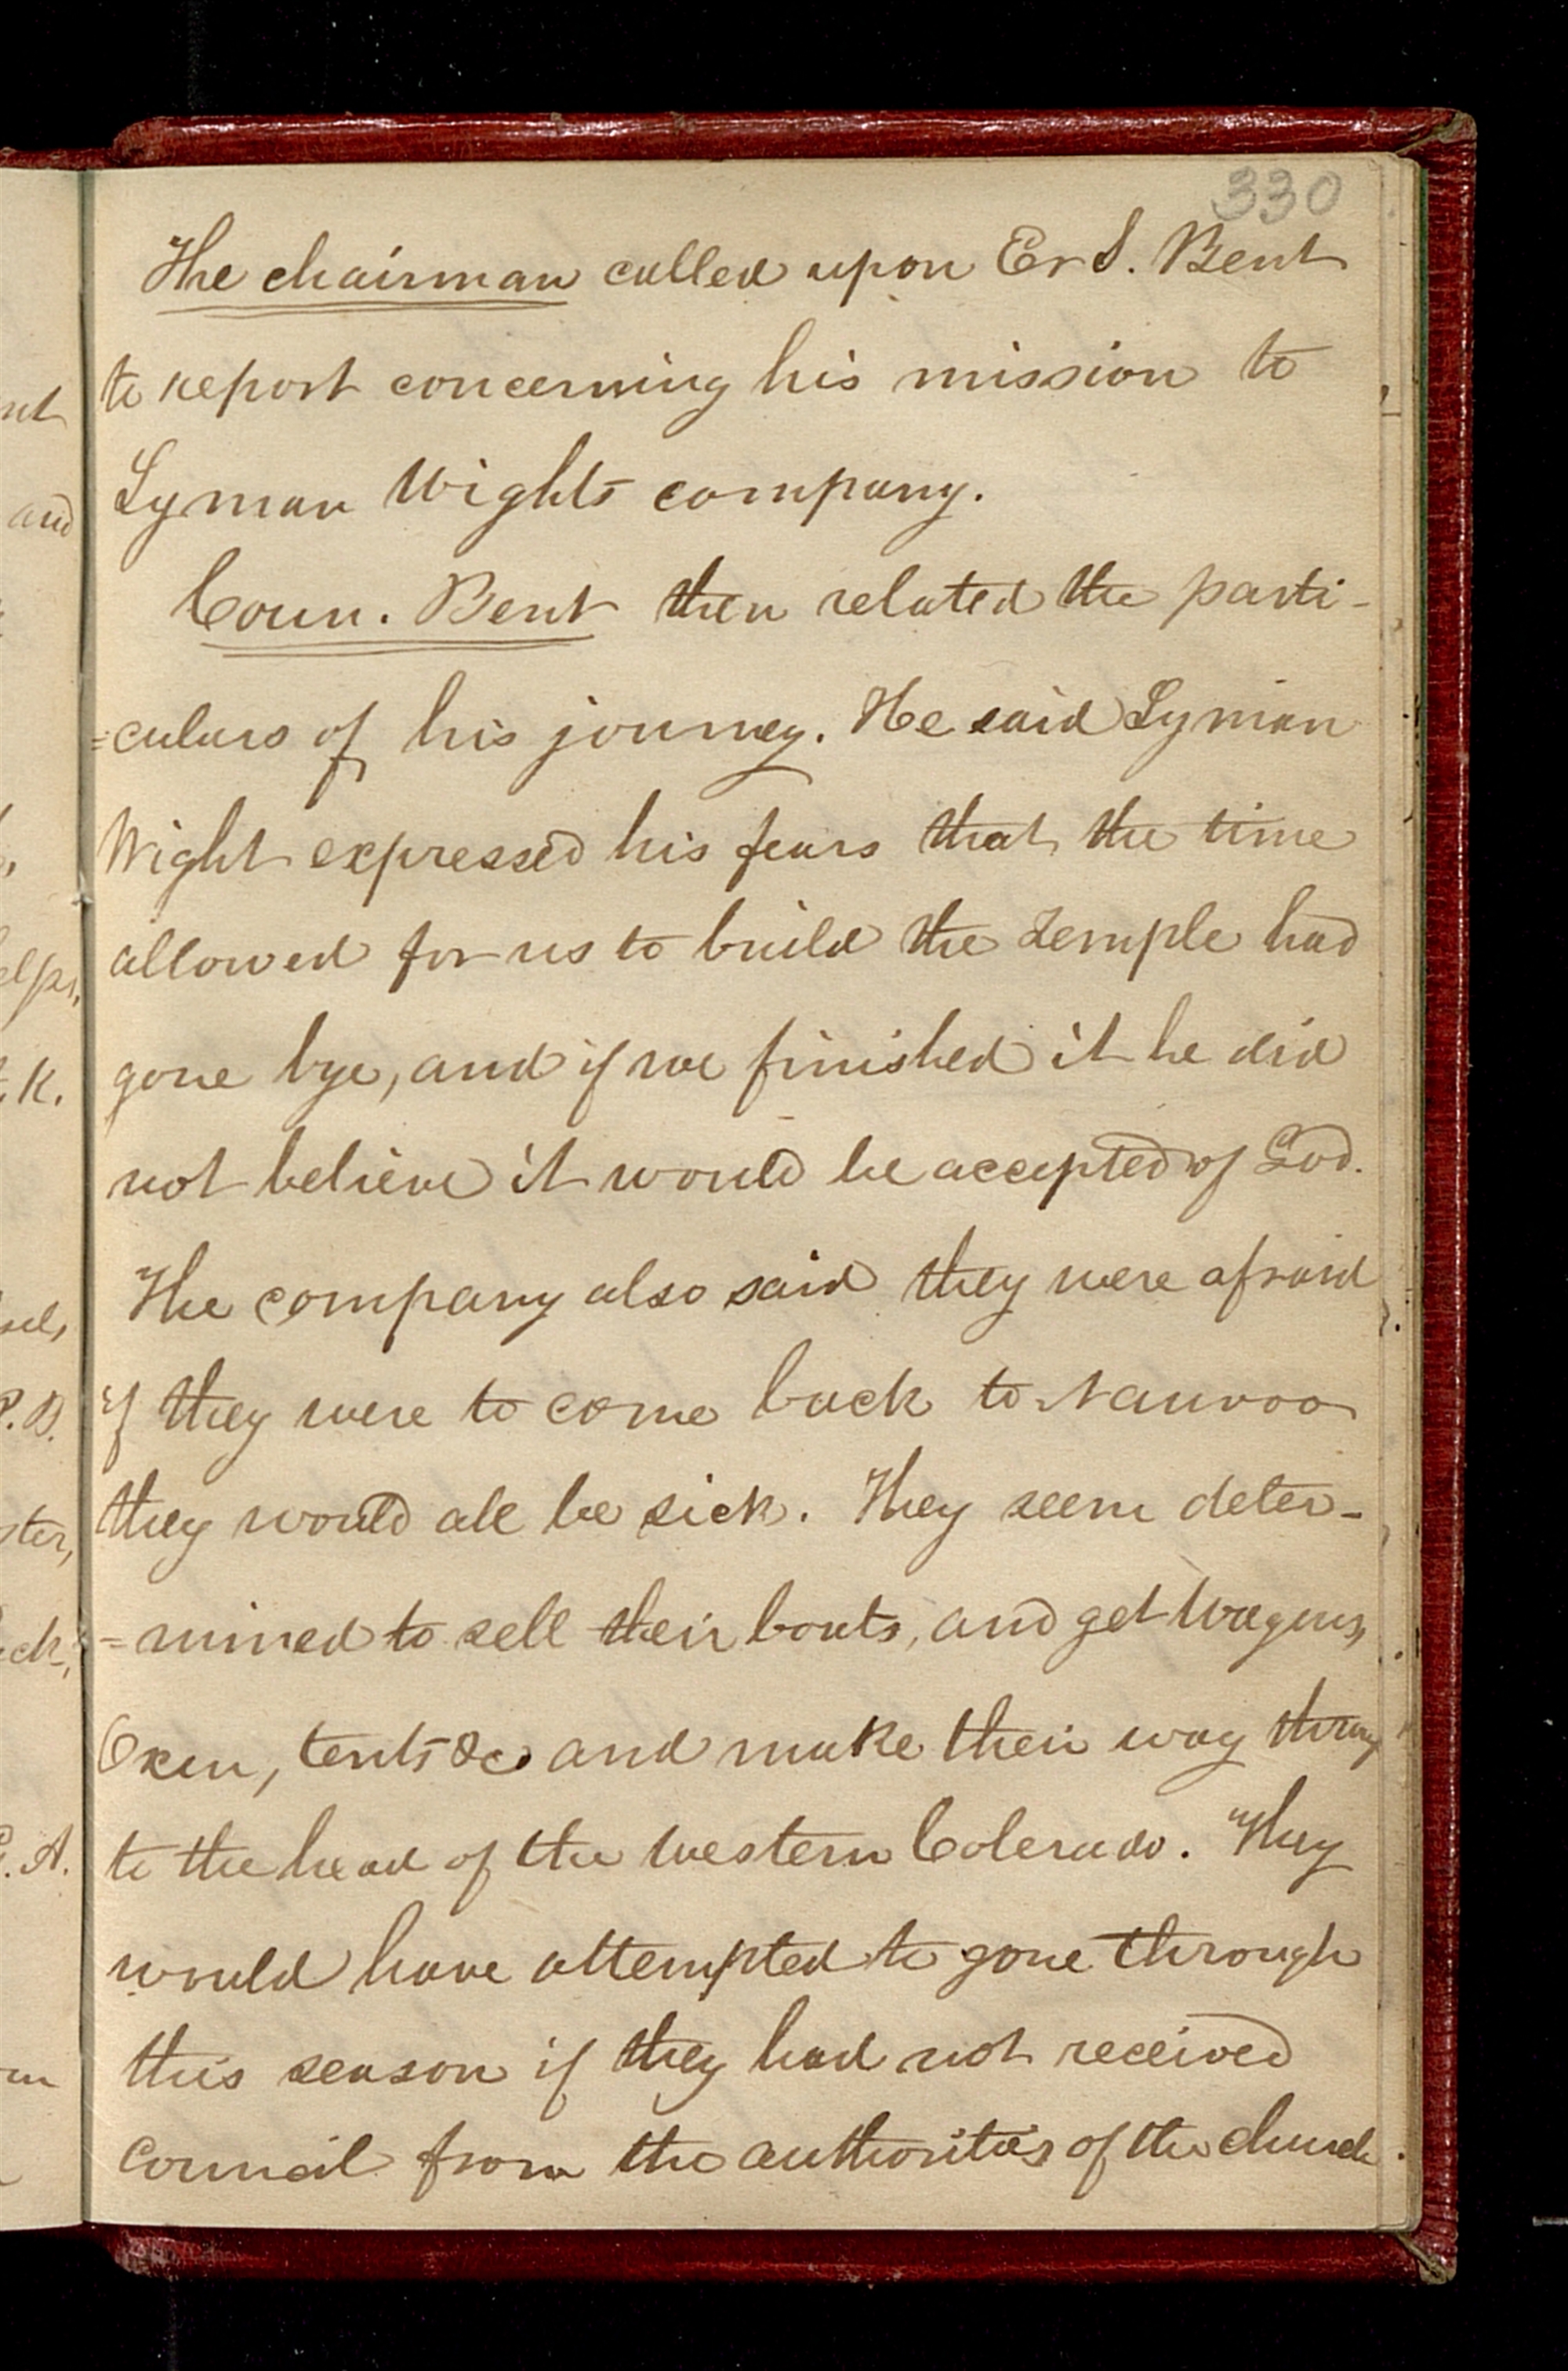 330
The chairman called upon Er S. Bent
to report concerning his mission to
Lyman Wights company.
Coun. Bent then related the parti-
=culars of his journey. He said Lyman
Wight expressed his fears that the time
allowed for us to build the Temple had
gone bye, and if we finished it he did
not believe it would be accepted of God.
The company also said they were afraid
if they were to come back to Nauvoo
they would all be sick. They seem deter-
=mined to sell their boats, and get Wagons,
Oxen, tents &c and make their way throug
to the head of the western Colerado. They
would have attempted to gone through
this season if they had not received
council from the authorities of the church
and
elps,
K.
P. D.
ster,
ck,
A.